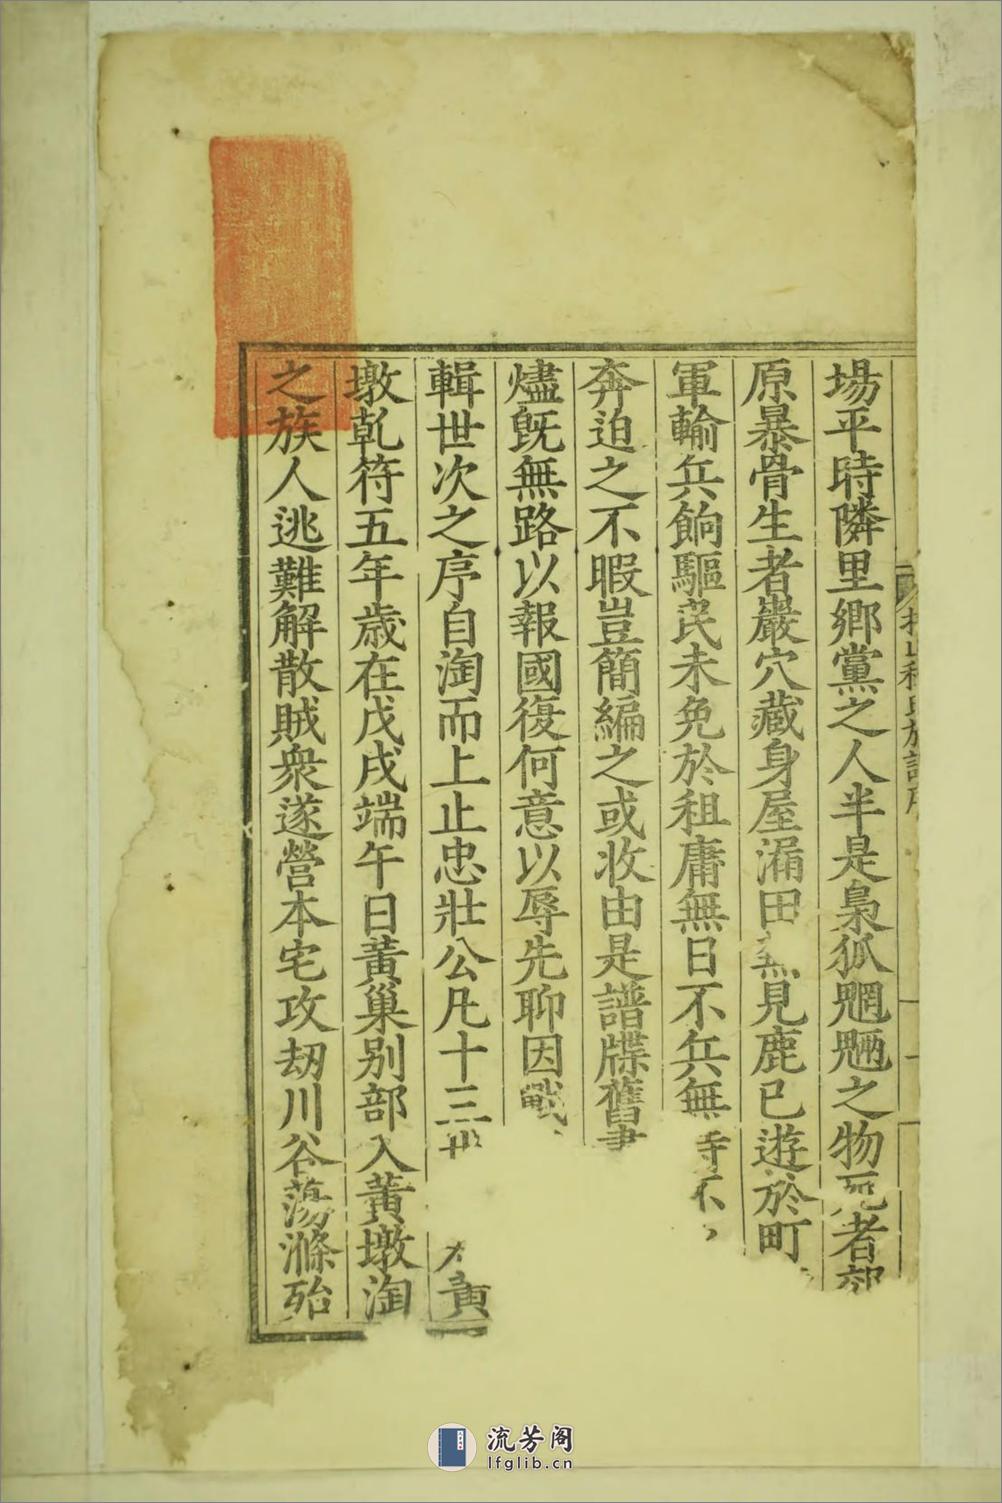 場平時隣里鄉黨之人半是梟狐魍魎之物死者郊
原暴骨生者巖穴藏身屋漏田蕪見鹿已遊於町
軍輸兵餉驅民未免於租庸無日不兵無時不
奔迫之不暇豈簡編之或收由是譜牒舊書
燼既無路以報國復何意以辱先聊因戰
輯世次之序自淘而上止忠壯公凡十三世 黄
墩乾符五年歲在戊戌端午日黄巢别部入黄墩淘
之族人逃難解散賊衆遂營本宅攻刼川谷蕩滌殆
流芳阁
lfglib.cn